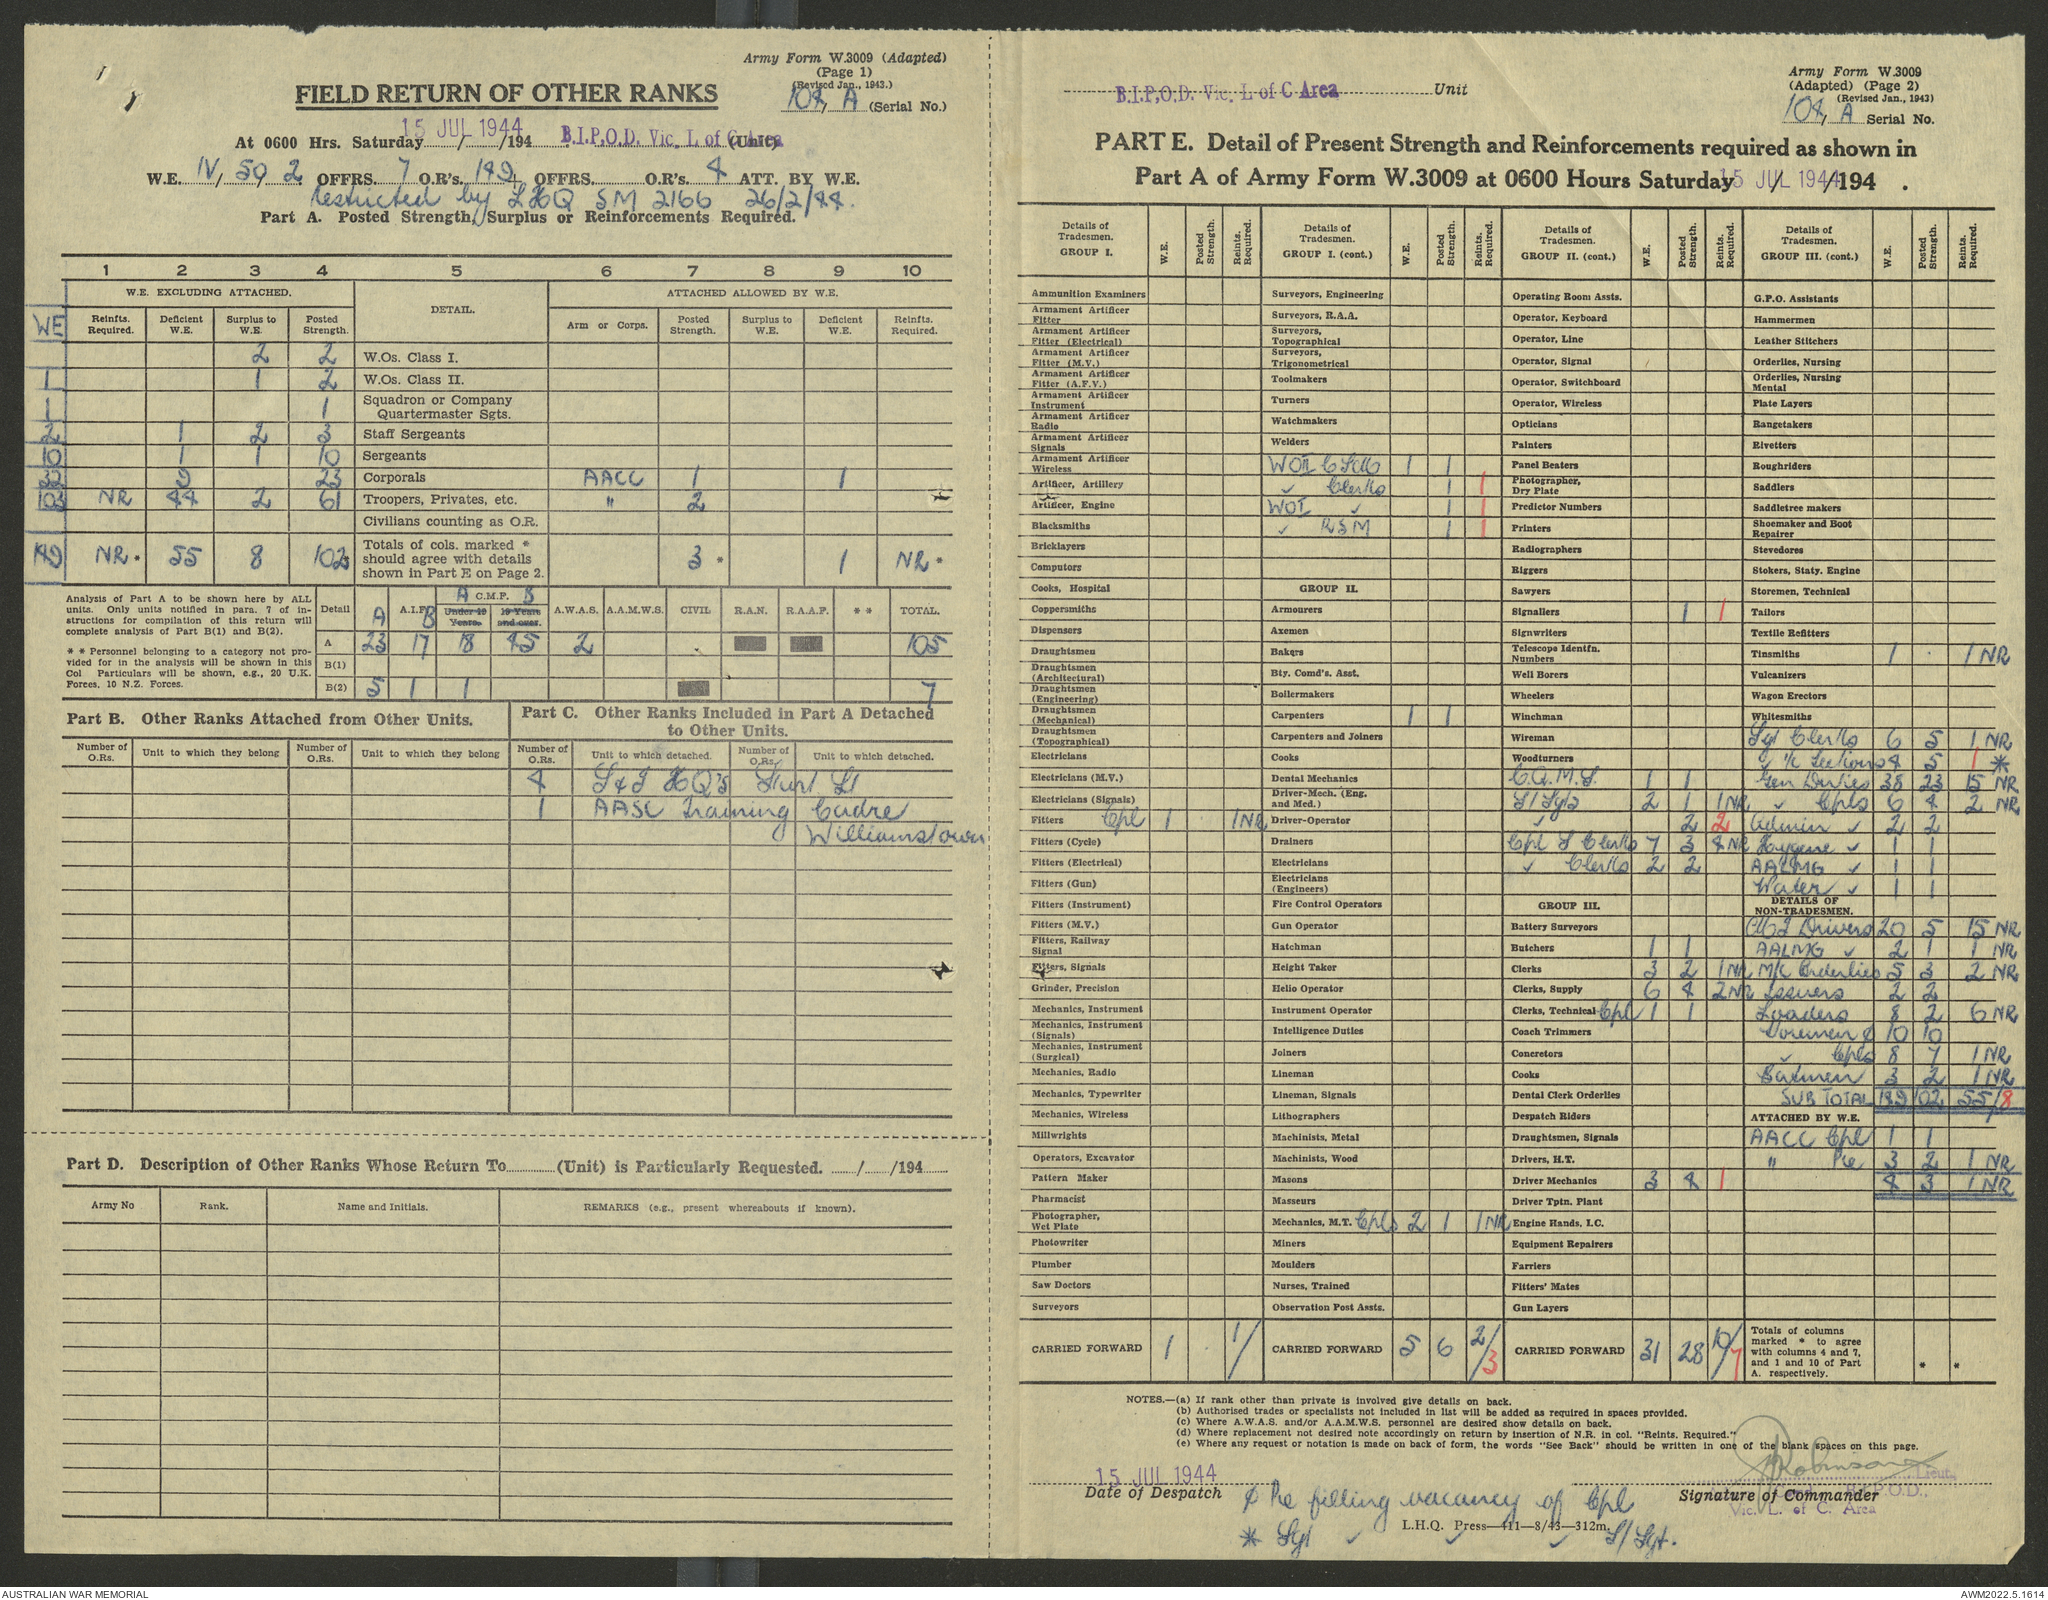 Army Form W.3009 (Adapted)
(Page 1)
(Revised Jan., 1943.)
FIELD RETURN OF OTHER RANKS
104, A (Serial No.)
At 0600 Hrs. Saturday 15 JUL 1944 /194 B.I.P.O.D. Vic. L of C Area (Unit)
W.E. IV, 50, 2 OFFRS. 7 O.R's. 149 OFFRS. O.R's. 4 ATT. BY W.E.
Restricted by LHQ SM 2166 26/2/44.
Part A. Posted Strength, Surplus or Reinforcements Required.
1 2 3 4 5 6 7 8 9 10
W.E. EXCLUDING ATTACHED. DETAIL. ATTACHED ALLOWED BY W.E.
WE Reinfts. Required. Deficient W.E. Surplus to W.E. Posted Strength. Arm or Corps. Posted Strength. Surplus to W.E. Deficient W.E. Reinfts. Required.
2 2 W.Os. Class I.
1 1 2 W.Os. Class II.
1 1 Squadron or Company Quartermaster Sgts.
2 1 2 3 Staff Sergeants
10 1 1 10 Sergeants
32 9 23 Corporals AACC 1 1
103 NR 44 2 61 Troopers, Privates, etc. " 2
Civilians counting as O.R.
149 NR * 55 8 102 * Totals of cols. marked * should agree with details shown in Part E on Page 2. 3 * 1 NR *
Analysis of Part A to be shown here by ALL units. Only units notified in para. 7 of instructions for compilation of this return will complete analysis of Part B(1) and B(2).
* * Personnel belonging to a category not provided for in the analysis will be shown in this Col Particulars will be shown, e.g., 20 U.K. Forces, 10 N.Z. Forces.
Detail A A.I.F. B A C.M.F. B Under 19 Years. 19 Years and over. A.W.A.S. A.A.M.W.S. CIVIL R.A.N. R.A.A.F. * * TOTAL.
A 23 17 18 45 2 105
B(1)
B(2) 5 1 1 7
Part B. Other Ranks Attached from Other Units.
Part C. Other Ranks Included in Part A Detached to Other Units.
Number of O.Rs. Unit to which they belong Number of O.Rs. Unit to which they belong
Number of O.Rs. Unit to which detached. Number of O.Rs. Unit to which detached.
4 S & T HQ's Sturt St
1 AASC Training Cadre
Williamstown
Part D. Description of Other Ranks Whose Return To (Unit) is Particularly Requested. / /194
Army No Rank. Name and Initials. REMARKS (e.g., present whereabouts if known).
B.I.P.O.D. Vic. L of C Area Unit
Army Form W.3009
(Adapted) (Page 2)
(Revised Jan., 1943)
104, A Serial No.
PART E. Detail of Present Strength and Reinforcements required as shown in
Part A of Army Form W.3009 at 0600 Hours Saturday 15 JUL 1944 /194 .
Details of Tradesmen. GROUP I. W.E. Posted Strength. Reints. Required.
Ammunition Examiners
Armament Artificer Fitter
Armament Artificer Fitter (Electrical)
Armament Artificer Fitter (M.V.)
Armament Artificer Fitter (A.F.V.)
Armament Artificer Instrument
Armament Artificer Radio
Armament Artificer Signals
Armament Artificer Wireless
Artificer, Artillery
Artificer, Engine
Blacksmiths
Bricklayers
Computors
Cooks, Hospital
Coppersmiths
Dispensers
Draughtsmen
Draughtsmen (Architectural)
Draughtsmen (Engineering)
Draughtsmen (Mechanical)
Draughtsmen (Topographical)
Electricians
Electricians (M.V.)
Electricians (Signals)
Fitters Cpl 1 1 NR
Fitters (Cycle)
Fitters (Electrical)
Fitters (Gun)
Fitters (Instrument)
Fitters (M.V.)
Fitters, Railway Signal
Fitters, Signals
Grinder, Precision
Mechanics, Instrument
Mechanics, Instrument (Signals)
Mechanics, Instrument (Surgical)
Mechanics, Radio
Mechanics, Typewriter
Mechanics, Wireless
Millwrights
Operators, Excavator
Pattern Maker
Pharmacist
Photographer, Wet Plate
Photowriter
Plumber
Saw Doctors
Surveyors
CARRIED FORWARD 1 1/
Details of Tradesmen. GROUP I. (cont.) W.E. Posted Strength. Reints. Required.
Surveyors, Engineering
Surveyors, R.A.A.
Surveyors, Topographical
Surveyors, Trigonometrical
Toolmakers
Turners
Watchmakers
Welders
WOII 1 1
✓ Clerks 1 1
WOI ✓ 1 1
✓ RSM 1 1
GROUP II.
Armourers
Axemen
Bakers
Bty. Comd's. Asst.
Boilermakers
Carpenters 1 1
Carpenters and Joiners
Cooks
Dental Mechanics
Driver-Mech. (Eng. and Med.)
Driver-Operator
Drainers
Electricians
Electricians (Engineers)
Fire Control Operators
Gun Operator
Hatchman
Height Taker
Helio Operator
Instrument Operator
Intelligence Duties
Joiners
Lineman
Lineman, Signals
Lithographers
Machinists, Metal
Machinists, Wood
Masons
Masseurs
Mechanics, M.T. Cpls 2 1 1 NR
Miners
Moulders
Nurses, Trained
Observation Post Assts.
CARRIED FORWARD 5 6 2/3
Details of Tradesmen. GROUP II. (cont.) W.E. Posted Strength. Reints. Required.
Operating Room Assts.
Operator, Keyboard
Operator, Line
Operator, Signal
Operator, Switchboard
Operator, Wireless
Opticians
Painters
Panel Beaters
Photographer, Dry Plate
Predictor Numbers
Printers
Radiographers
Riggers
Sawyers
Signallers 1 1
Signwriters
Telescope Identfn. Numbers
Well Borers
Wheelers
Winchman
Wireman
Woodturners
C.Q.M.S. 1 1
S/Sgts 2 1 1 NR
✓ 2 2
Cpl S Clerks 7 3 4 NR
✓ Clerks 2 2
GROUP III.
Battery Surveyors
Butchers 1 1
Clerks 3 2 1 NR
Clerks, Supply 6 4 2 NR
Clerks, Technical Cpl 1 1
Coach Trimmers
Concretors
Cooks
Dental Clerk Orderlies
Despatch Riders
Draughtsmen, Signals
Drivers, H.T.
Driver Mechanics 3 4 1
Driver Tptn. Plant
Engine Hands, I.C.
Equipment Repairers
Farriers
Fitters' Mates
Gun Layers
CARRIED FORWARD 31 28 10/7
Details of Tradesmen. GROUP III. (cont.) W.E. Posted Strength. Reints. Required.
G.P.O. Assistants
Hammermen
Leather Stitchers
Orderlies, Nursing
Orderlies, Nursing Mental
Plate Layers
Rangetakers
Rivetters
Roughriders
Saddlers
Saddletree makers
Shoemaker and Boot Repairer
Stevedores
Stokers, Staty. Engine
Storemen, Technical
Tailors
Textile Refitters
Tinsmiths 1 1 NR
Vulcanizers
Wagon Erectors
Whitesmiths
Sgt Clerks 6 5 1 NR
✓ i/c Sections 4 5 1 *
Gen Duties 38 23 15 NR
✓ Cpls 6 4 2 NR
Admin ✓ 2 2
Hygene ✓ 1 1
AALMG ✓ 1 1
Water ✓ 1 1
DETAILS OF NON-TRADESMEN.
Drivers 20 5 15 NR
AALMG ✓ 2 1 1 NR
M/C Orderlies 5 3 2 NR
Issuers 2 2
Loaders 8 2 6 NR
Storemen ¢ 10 10
✓ Cpls 8 7 1 NR
Batmen 3 2 1 NR
SUB TOTAL 149 102 55/8
ATTACHED BY W.E.
AACC Cpl 1 1
" Pte 3 2 1 NR
4 3 1 NR
Totals of columns marked * to agree with columns 4 and 7, and 1 and 10 of Part A. respectively. * *
NOTES.—(a) If rank other than private is involved give details on back.
(b) Authorised trades or specialists not included in list will be added as required in spaces provided.
(c) Where A.W.A.S. and/or A.A.M.W.S. personnel are desired show details on back.
(d) Where replacement not desired note accordingly on return by insertion of N.R. in col. "Reints. Required."
(e) Where any request or notation is made on back of form, the words "See Back" should be written in one of the blank spaces on this page.
15 JUL 1944
Date of Despatch
Robinson Lieut.
Signature of Commander
B.I.P.O.D.,
Vic. L. of C. Area
¢ Pte filling vacancy of Cpl
L.H.Q. Press—411—8/43—312m.
* Sgt ✓ ✓ ✓ S/Sgt.
AUSTRALIAN WAR MEMORIAL
AWM2022.5.1614